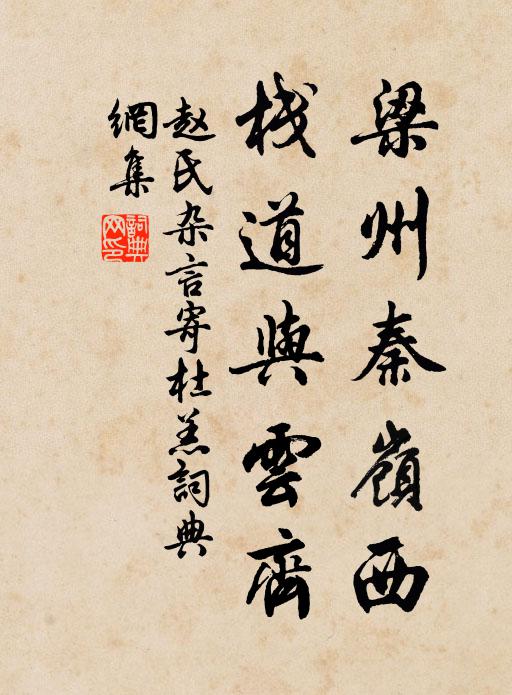 梁州秦嶺西
栈道與雲齊
赵氏杂言寄杜羔詞典
網集
詞典
网印